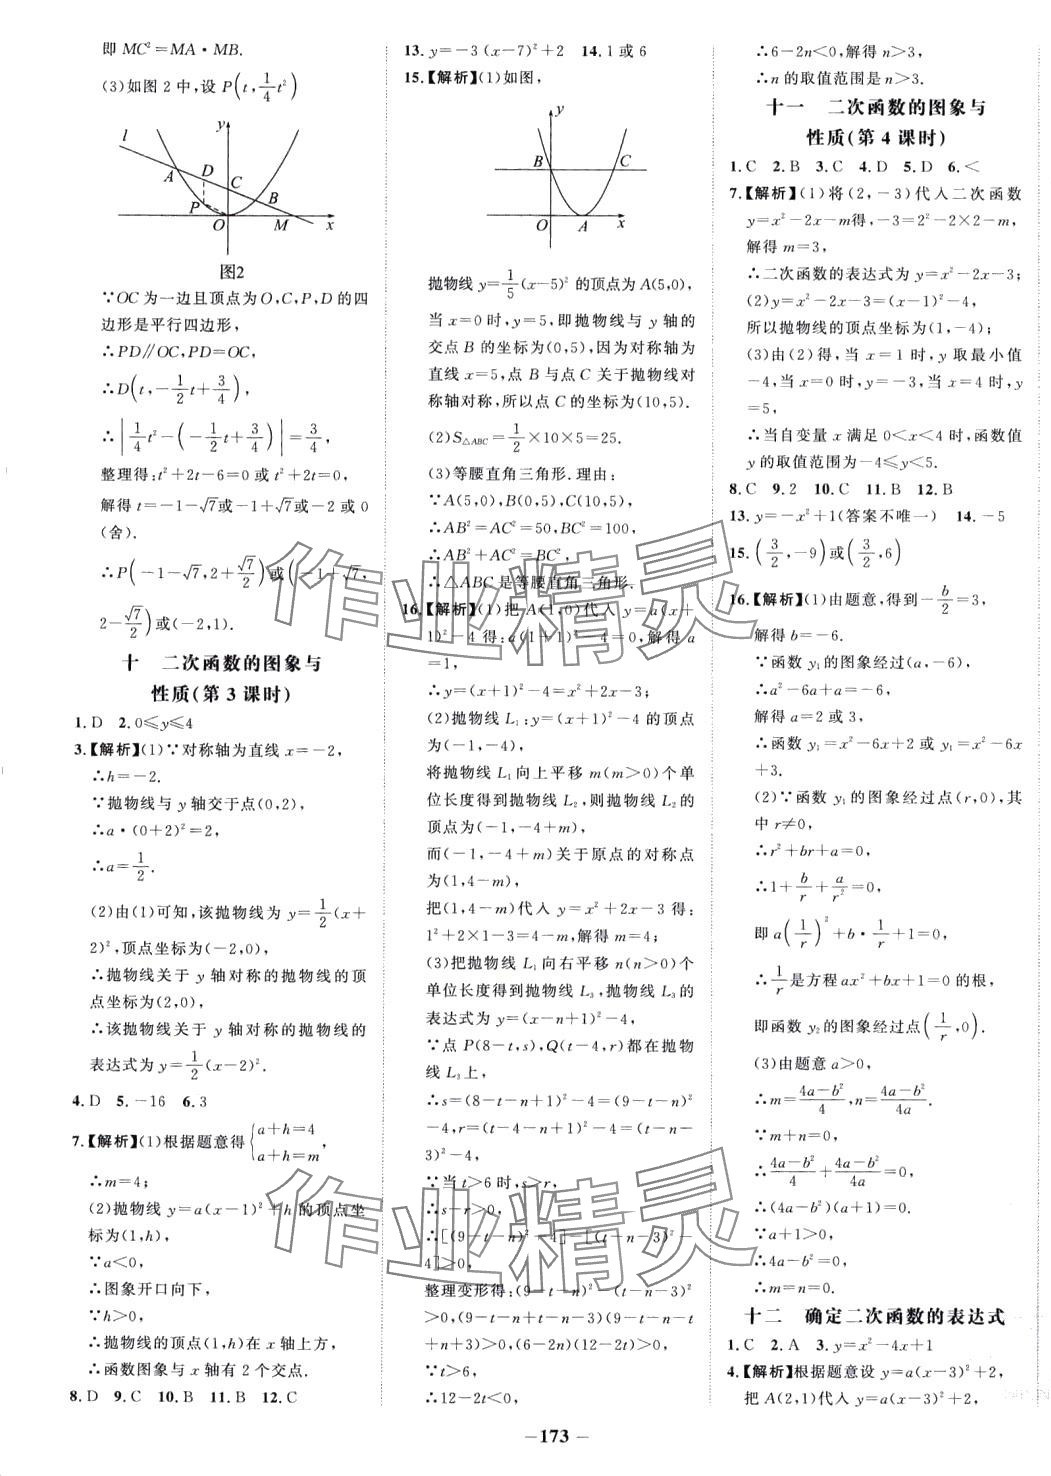 即 MC²=MA·MB.
(3)如图 2 中,设 P(t,1/4t²)
y
l
A
D
C
B
P
O
M
x
图2
∵OC 为一边且顶点为 O,C,P,D 的四
边形是平行四边形,
∴PD∥OC,PD=OC,
∴D(t,-1/2t+3/4),
∴|1/4t²-(-1/2t+3/4)|=3/4,
整理得:t²+2t-6=0 或 t²+2t=0,
解得 t=-1-√7或-1+√7或-2 或 0
(舍).
∴P(-1-√7,2+√7/2)或(-1+√7,
2-√7/2)或(-2,1).
十 二次函数的图象与
性质(第 3 课时)
1.D 2.0≤y≤4
3.【解析】(1)∵对称轴为直线 x=-2,
∴h=-2.
∵抛物线与 y 轴交于点(0,2),
∴a·(0+2)²=2,
∴a=1/2.
(2)由(1)可知,该抛物线为 y=1/2(x+
2)²,顶点坐标为(-2,0),
∴抛物线关于 y 轴对称的抛物线的顶
点坐标为(2,0),
∴该抛物线关于 y 轴对称的抛物线的
表达式为 y=1/2(x-2)².
4.D 5.-16 6.3
7.【解析】(1)根据题意得{a+h=4
a+h=m,
∴m=4;
(2)抛物线 y=a(x-1)²+h 的顶点坐
标为(1,h),
∵a<0,
∴图象开口向下,
∵h>0,
∴抛物线的顶点(1,h)在 x 轴上方,
∴函数图象与 x 轴有 2 个交点.
8.D 9.C 10.B 11.B 12.C
13.y=-3(x-7)²+2 14.1 或 6
15.【解析】(1)如图,
y
B
C
O
A
x
抛物线 y=1/5(x-5)² 的顶点为 A(5,0),
当 x=0 时,y=5,即抛物线与 y 轴的
交点 B 的坐标为(0,5),因为对称轴为
直线 x=5,点 B 与点 C 关于抛物线对
称轴对称,所以点 C 的坐标为(10,5).
(2)S△ABC=1/2×10×5=25.
(3)等腰直角三角形.理由:
∵A(5,0),B(0,5),C(10,5),
∴AB²=AC²=50,BC²=100,
∴AB²+AC²=BC²,
∴△ABC 是等腰直角三角形.
16.【解析】(1)把 A(1,0)代入 y=a(x+
1)²-4 得:a(1+1)²-4=0,解得 a
=1,
∴y=(x+1)²-4=x²+2x-3;
(2)抛物线 L₁:y=(x+1)²-4 的顶点
为(-1,-4),
将抛物线 L₁向上平移 m(m>0)个单
位长度得到抛物线 L₂,则抛物线 L₂的
顶点为(-1,-4+m),
而(-1,-4+m)关于原点的对称点
为(1,4-m),
把(1,4-m)代入 y=x²+2x-3 得:
1²+2×1-3=4-m,解得 m=4;
(3)把抛物线 L₁向右平移 n(n>0)个
单位长度得到抛物线 L₃,抛物线 L₃的
表达式为 y=(x-n+1)²-4,
∵点 P(8-t,s),Q(t-4,r)都在抛物
线 L₃上,
∴s=(8-t-n+1)²-4=(9-t-n)²
-4,r=(t-4-n+1)²-4=(t-n-
3)²-4,
∵当 t>6 时,s>r,
∴s-r>0,
∴[(9-t-n)²-4]-[(t-n-3)²-
4]>0,
整理变形得:(9-t-n)²-(t-n-3)²
>0,(9-t-n+t-n-3)(9-t-n-t
+n+3)>0,(6-2n)(12-2t)>0,
∵t>6,
∴12-2t<0,
∴6-2n<0,解得 n>3,
∴n 的取值范围是 n>3.
十一 二次函数的图象与
性质(第 4 课时)
1.C 2.B 3.C 4.D 5.D 6.<
7.【解析】(1)将(2,-3)代入二次函数
y=x²-2x-m得,-3=2²-2×2-m,
解得 m=3,
∴二次函数的表达式为 y=x²-2x-3;
(2)y=x²-2x-3=(x-1)²-4,
所以抛物线的顶点坐标为(1,-4);
(3)由(2)得,当 x=1 时,y 取最小值
-4,当 x=0 时,y=-3,当 x=4 时,y
=5,
∴当自变量 x 满足 0<x<4 时,函数值
y 的取值范围为-4≤y<5.
8.C 9.2 10.C 11.B 12.B
13.y=-x²+1(答案不唯一) 14.-5
15.(3/2,-9)或(3/2,6)
16.【解析】(1)由题意,得到-b/2=3,
解得 b=-6.
∵函数 y₁的图象经过(a,-6),
∴a²-6a+a=-6,
解得 a=2 或 3,
∴函数 y₁=x²-6x+2 或 y₁=x²-6x
+3.
(2)∵函数 y₁的图象经过点(r,0),其
中 r≠0,
∴r²+br+a=0,
∴1+b/r+a/r²=0,
即 a(1/r)²+b·1/r+1=0,
∴1/r是方程 ax²+bx+1=0 的根,
即函数 y₂的图象经过点(1/r,0).
(3)由题意 a>0,
∴m=4a-b²/4,n=4a-b²/4a.
∵m+n=0,
∴4a-b²/4+4a-b²/4a=0,
∴(4a-b²)(a+1)=0.
∵a+1>0,
∴4a-b²=0,
∴m=n=0.
十二 确定二次函数的表达式
1.C 2.A 3.y=x²-4x+1
4.【解析】根据题意设 y=a(x-3)²+2,
把 A(2,1)代入 y=a(x-3)²+2,
-173-
作业精灵
作业精灵